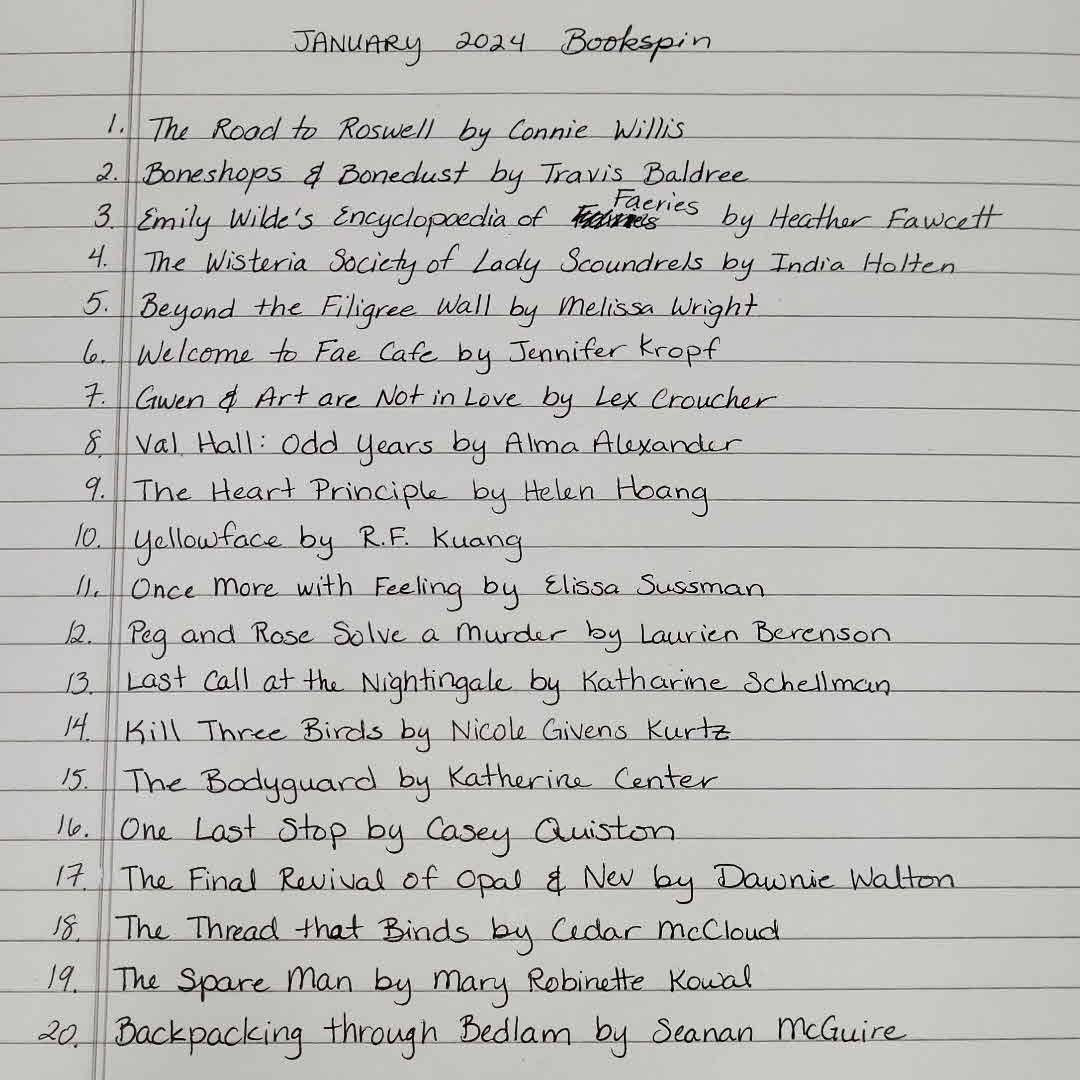 JANUARY 2024 Bookspin
1. The Road to Roswell by Connie Willis
2. Boneshops & Bonedust by Travis Baldree
3. Emily Wilde's Encyclopaedia of Faeries by Heather Fawcett
4. The Wisteria Society of Lady Scoundrels by India Holten
5. Beyond the Filigree Wall by Melissa Wright
6. Welcome to Fae Cafe by Jennifer Kropf
7. Gwen & Art are Not in Love by Lex Croucher
8. Val Hall: Odd Years by Alma Alexander
9. The Heart Principle by Helen Hoang
10. Yellowface by R.F. Kuang
11. Once More with Feeling by Elissa Sussman
12. Peg and Rose Solve a Murder by Laurien Berenson
13. Last Call at the Nightingale by Katharine Schellman
14. Kill Three Birds by Nicole Givens Kurtz
15. The Bodyguard by Katherine Center
16. One Last Stop by Casey Quiston
17. The Final Revival of Opal & Nev by Dawnie Walton
18. The Thread that Binds by Cedar McCloud
19. The Spare Man by Mary Robinette Kowal
20. Backpacking through Bedlam by Seanan McGuire